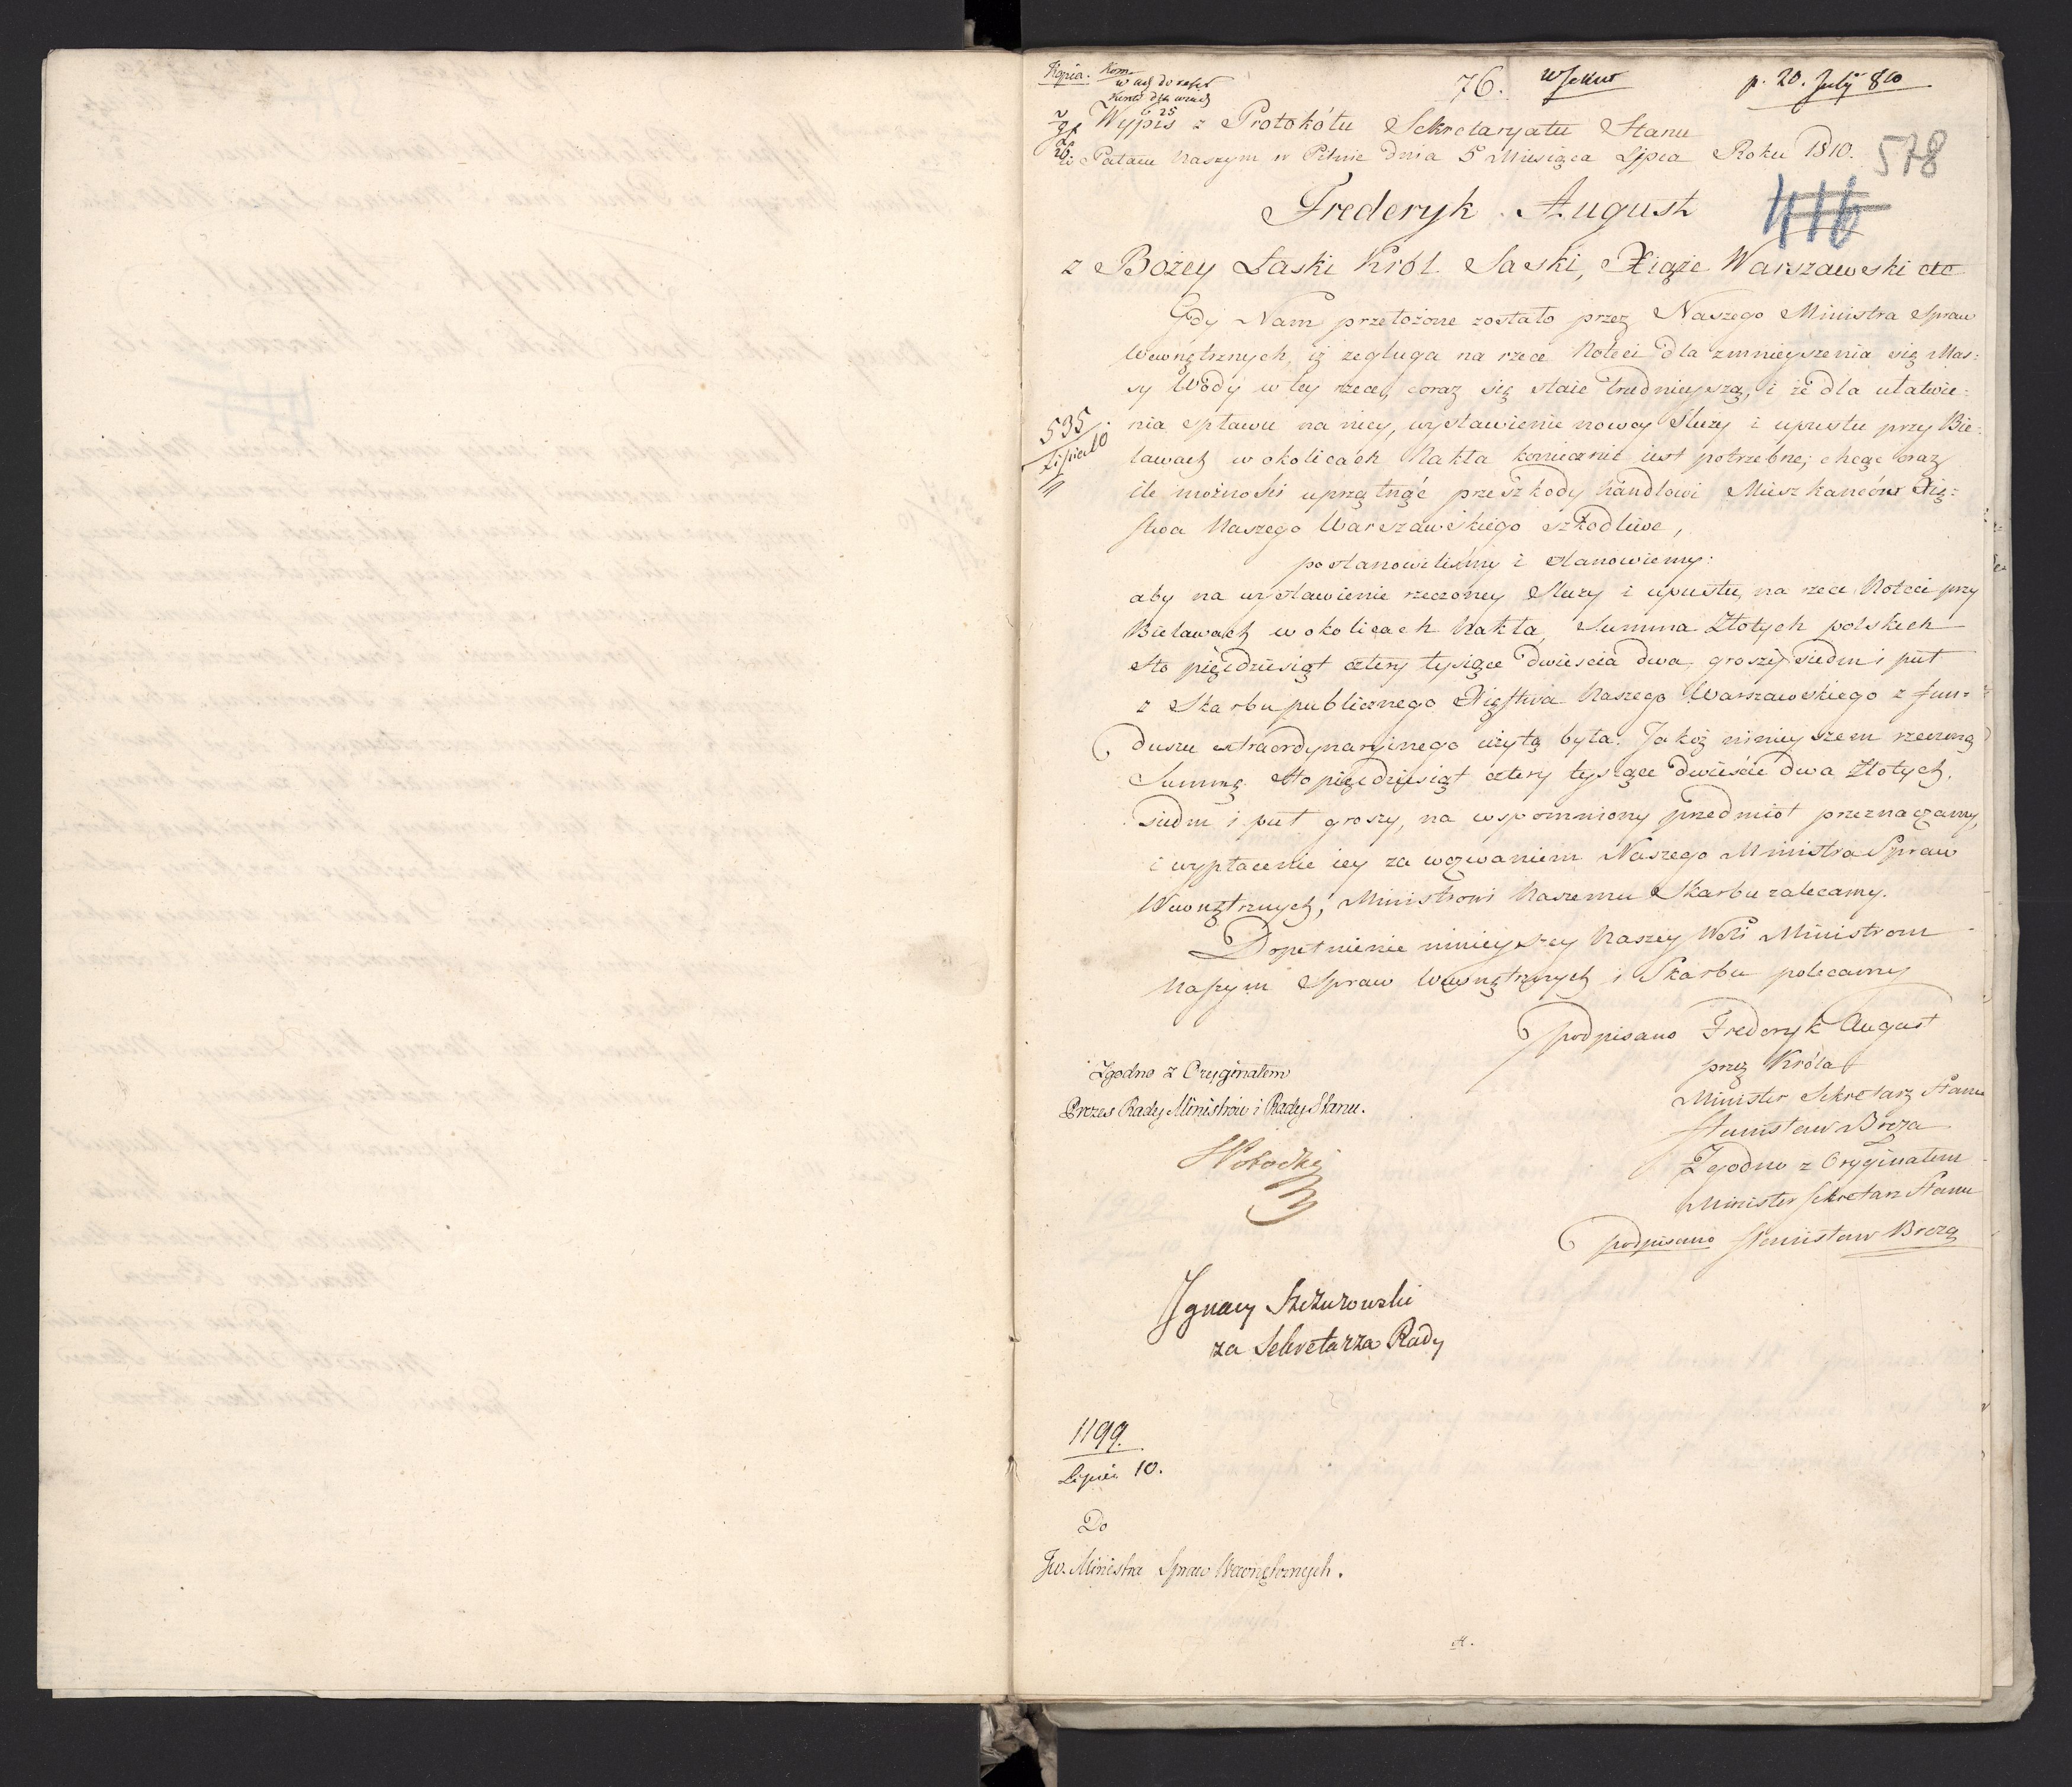 Kopia.
76.
p. 20. July 810
578
Wypis z Protokółu Sekretaryatu Stanu
w Pałacu Naszym w Pilnic dnia 5 Miesiąca Lipca Roku 1810.
416
Frederyk August
z Bożey Łaski Król Saski, Xiąże Warszawski etc
Gdy Nam przełożone zostało przez Naszego Ministra Spraw
Wewnętrznych, iż żegluga na rzece Noteci dla zmnieyszenia się Mas:
sy Wody w tey rzece, coraz się staie trudnieyszą, i że dla ułatwie:
nia spławu na niey, wystawienie nowey Śluzy i upustu przy Bie:
ławach w okolicach Nakła koniecznie iest potrzebne; chcąc oraz
ile możności uprzątnąć przeszkody handlowi Mieszkańców Xię:
stwa Naszego Warszawskiego szkodliwe,
postanowiliśmy i stanowiemy:
aby na wystawienie rzeczoney Śluzy i upustu, na rzece Noteci przy
Bieławach w okolicach Nakła, Summa Złotych polskich
sto pięćdziesiąt cztery tysiące dwieścia dwa, groszy siedm i puł
z Skarbu publicznego Xięstwa Naszego Warszawskiego z fun:
duszu extraordynaryinego użytą była. Jakoż ninieyszem rzeczoną
Summę sto pięćdziesiąt cztery tysiące dwieście dwa Złotych,
siedm i puł groszy, na wspomniony przedmiot przeznaczamy,
i wypłacenie iey za wezwaniem Naszego Ministra Spraw
Wewnętrznych, Ministrowi Naszemu Skarbu zalecamy.
Dopełnienie ninieyszey Naszey Woli Ministrom
Naszym Spraw Wewnętrznych i Skarbu polecamy
535
Lipca 10
podpisano Frederyk August
przez Króla
Minister Sekretarz Stanu
Stanisław Breza
Zgodno z Oryginałem
Minister Sekretarz Stanu
podpisano Stanisław Breza
Zgodno z Oryginałem
Prezes Rady Ministrów i Rady Stanu.
Ignacy
za Sekretarza Rady
1199.
Lipca 10.
Do
Jw. Ministra Spraw Wewnętrznych.